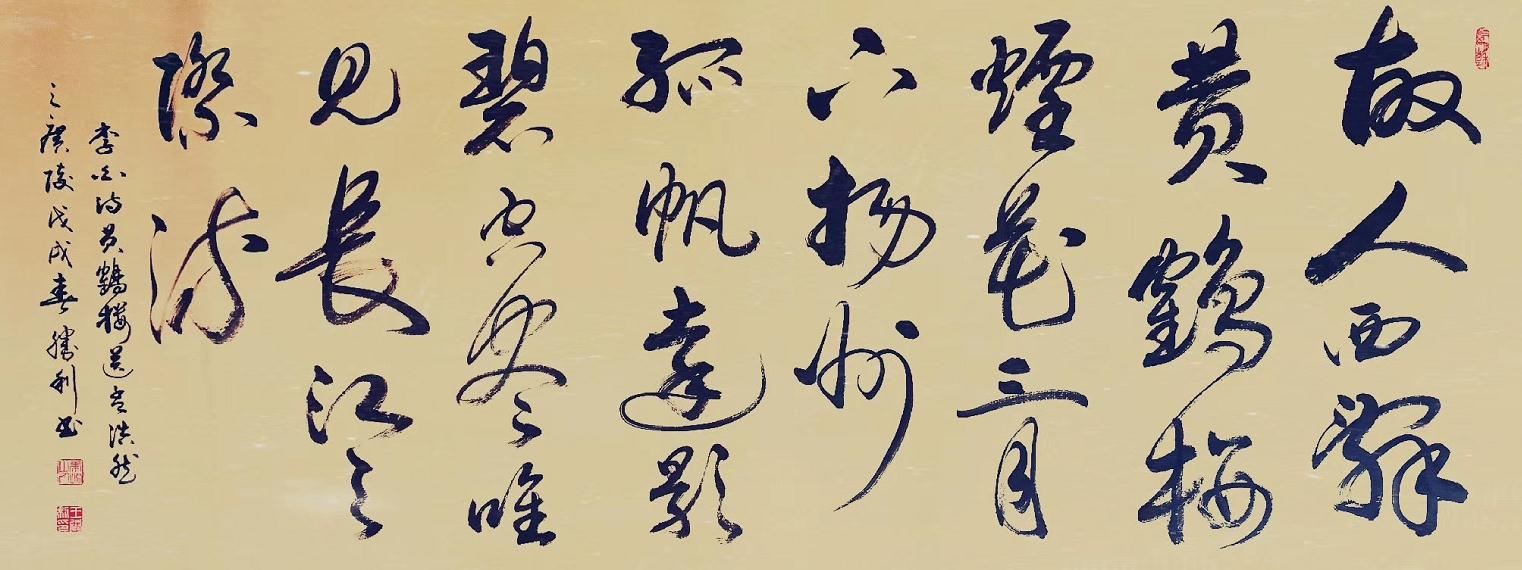 故人西辭
黄鶴楼
煙花三月
下揚州
孤帆遠影
碧空盡唯
見長江之
際流
李白詩黄鶴楼送孟浩然
之廣陵戊戌春勝利书